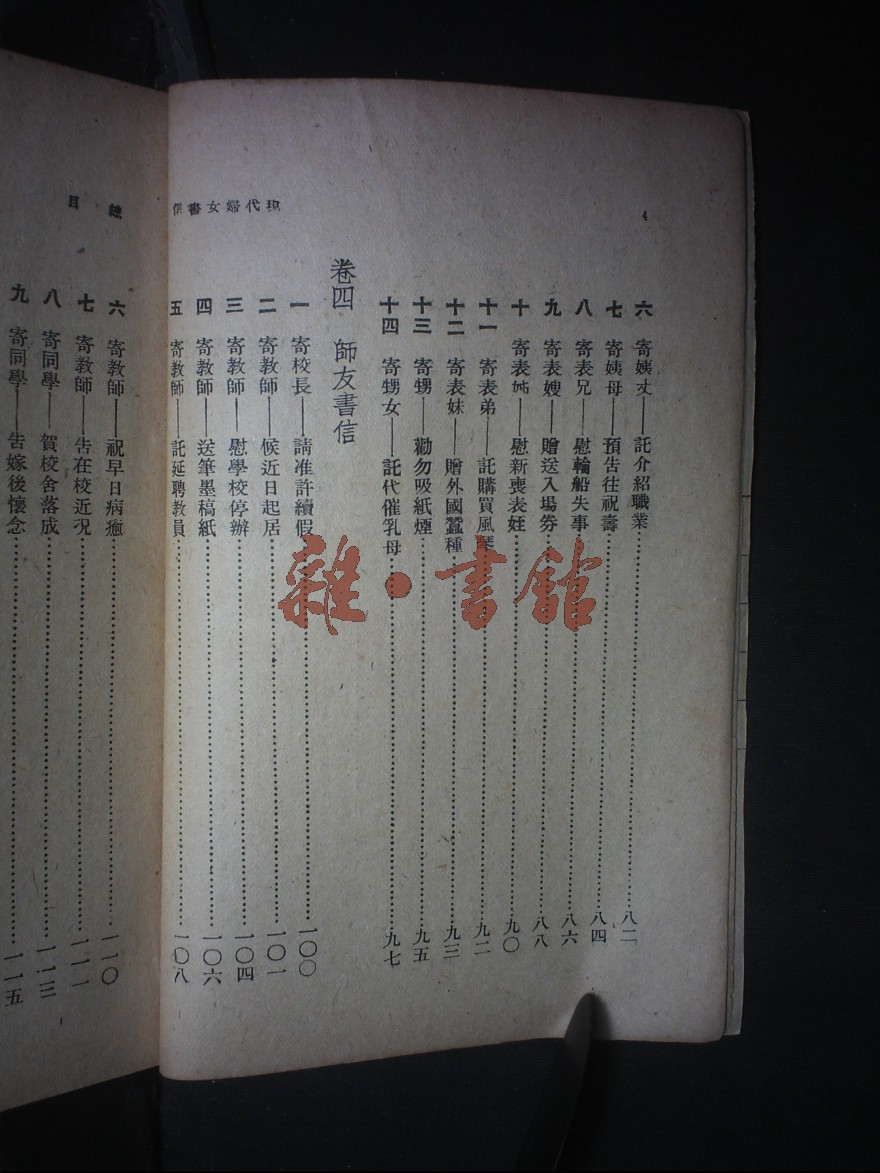 現代婦女書信
4
六 寄姨丈——託介紹職業……八二
七 寄姨母——預告往祝壽……八四
八 寄表兄——慰輪船失事……八六
九 寄表嫂——贈送入場券……八八
十 寄表姊——慰新喪表姪……九〇
十一 寄表弟——託購買風琴……九二
十二 寄表妹——贈外國蠶種……九三
十三 寄甥——勸勿吸紙煙……九五
十四 寄甥女——託代催乳母……九七
卷四 師友書信
一 寄校長——請准許續假……一〇〇
二 寄教師——候近日起居……一〇一
三 寄教師——慰學校停辦……一〇四
四 寄教師——送筆墨稿紙……一〇六
五 寄教師——託延聘教員……一〇八
目錄
六 寄教師——祝早日病癒……一一〇
七 寄教師——告在校近況……一一一
八 寄同學——賀校舍落成……一一三
九 寄同學——告嫁後懷念……一一五
雜·書館